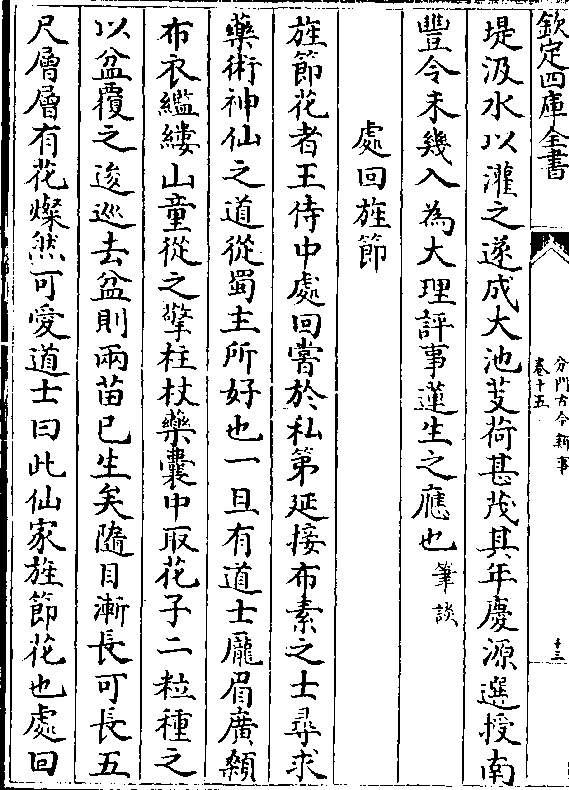 欽定四庫全書
分門古今類事
卷十五
十三
堤汲水以灌之遂成大池芰荷甚茂其年慶源選授南
豐令未幾入為大理評事蓮生之應也筆談
處回旌節
旌節花者王侍中處回嘗於私第延接布素之士尋求
藥術神仙之道從蜀主所好也一旦有道士龎眉廣顙
布衣繿縷山童從之擎柱杖藥囊中取花子二粒種之
以盆覆之逡巡去盆則兩苗已生矣隨目漸長可長五
尺層層有花燦然可愛道士曰此仙家旌節花也處回